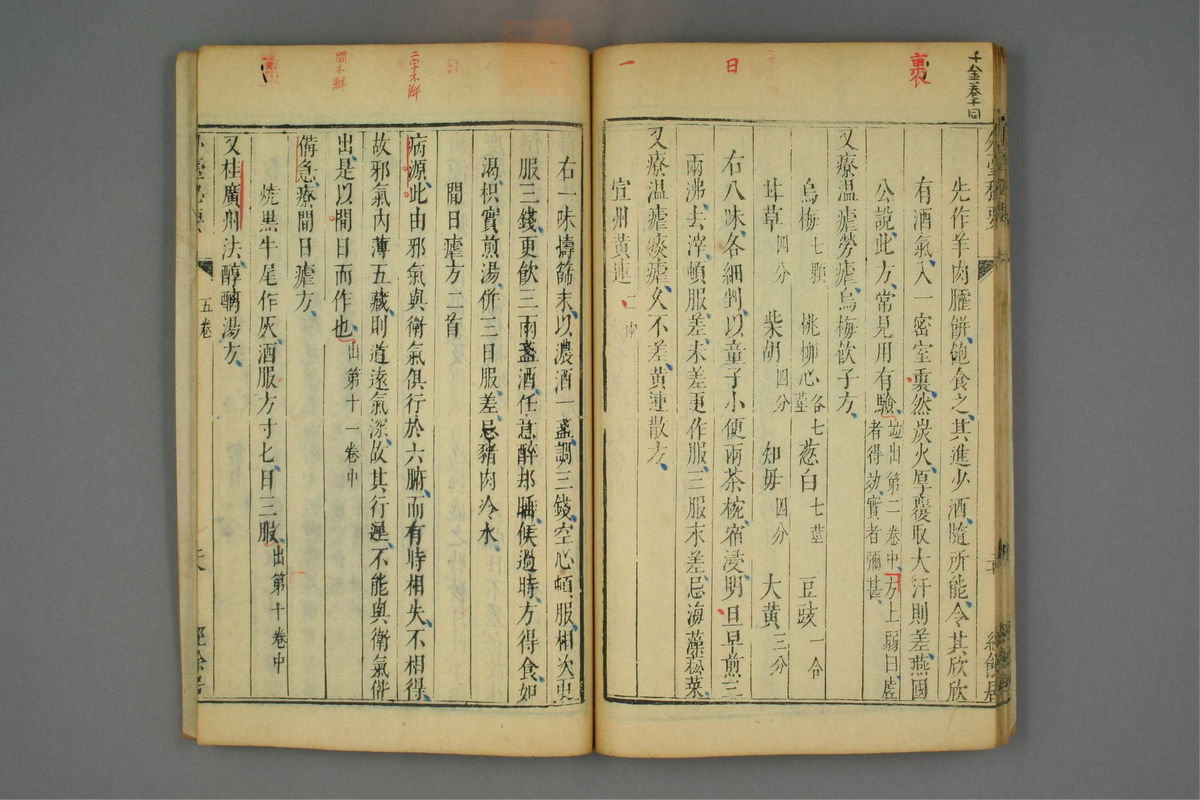 千金卷十四
裹
日
一
先作羊肉臛餅飽食之其進少酒隨所能令其欣欣
有酒氣入一密室裹然炭火厚覆取大汗則差燕國
公說此方常見用有驗
並出第二卷中方上弱曰虛
者得効實者彌甚
又療溫瘧勞瘧烏梅飲子方
烏梅七顆 桃柳心各七莖 葱白七莖 豆豉一合
甘草四分 柴胡四分 知母四分 大黃三分
右八味各細剉以童子小便兩茶椀宿浸明旦早煎三
兩沸去滓頓服差未差更作服三服末差忌海藻菘菜
又療溫瘧痰瘧久不差黃連散方
宣州黃連
右一味擣篩末以濃酒一盞調三錢空心頓服相次更
服三錢更飲三兩盞酒任意醉却睡候過時方得食如
渴枳實煎湯併三日服差忌豬肉冷水
間日瘧方二首
病源此由邪氣與衛氣俱行於六腑而有時相失不相得
故邪氣內薄五藏則道遠氣深故其行遲不能與衛氣偕
出是以間日而作也出第十一卷中
備急療間日瘧方
燒黑牛尾作灰酒服方寸匕日三服出第十卷中
又桂廣州法醇醨湯方
二字不鮮
間不鮮
五卷